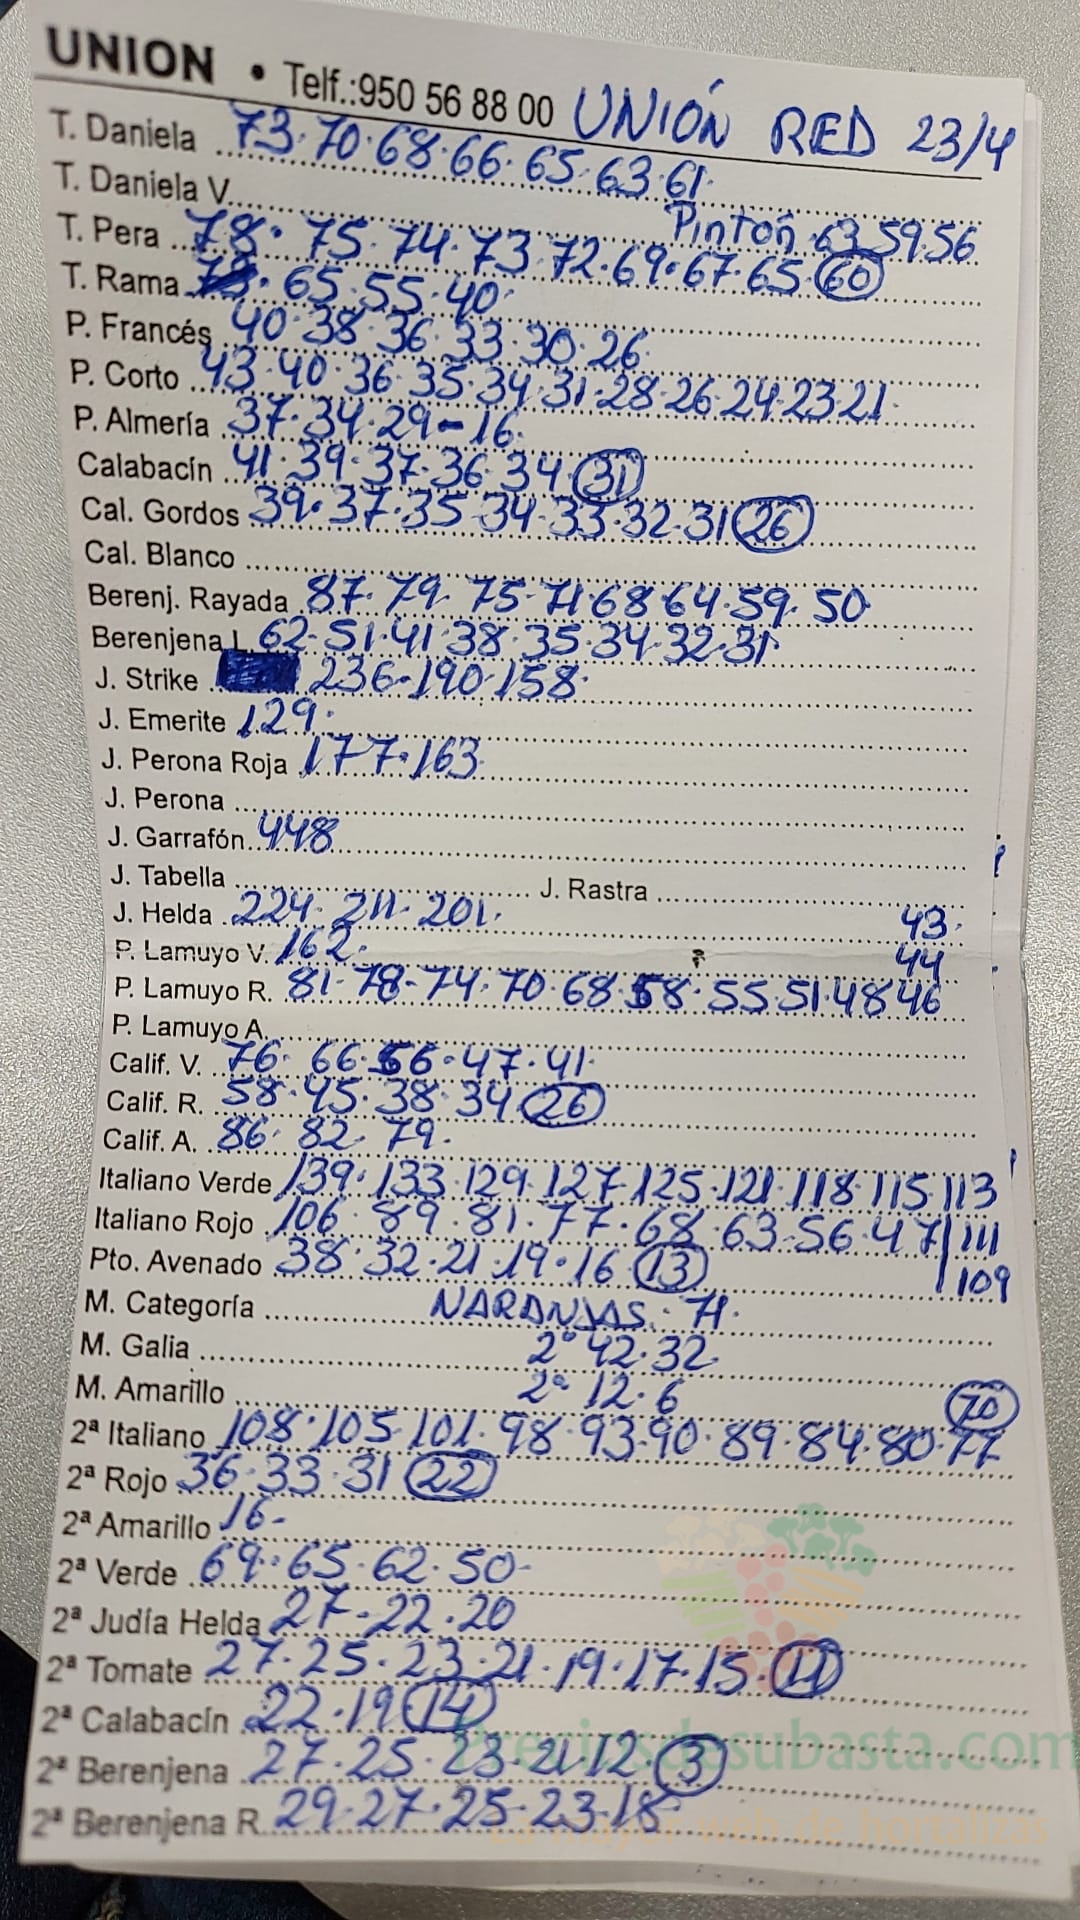 UNION • Telf.:950 56 88 00 UNIÓN RED 23/4
T. Daniela 73.70.68.66.65.63.61.
T. Daniela V. Pintón 63.59.56
T. Pera 78.75.74.73.72.69.67.65.60
T. Rama 65.55.40.
P. Francés 40.38.36.33.30.26.
P. Corto 43.40.36.35.34.31.28.26.24.23.21.
P. Almería 37.34.29-16.
Calabacín 41.39.37.36.34 31
Cal. Gordos 39.37.35.34.33.32.31 26
Cal. Blanco
Berenj. Rayada 87.79.75.71.68.64.59.50.
Berenjena L 62.51.41.38.35.34.32.31.
J. Strike 236.190.158.
J. Emerite 129.
J. Perona Roja 177.163
J. Perona
J. Garrafón 448
J. Tabella J. Rastra
J. Helda 224.211.201. 43.
P. Lamuyo V. 162. 44
P. Lamuyo R. 81.78.74.70.68.58.55.51.48.46
P. Lamuyo A.
Calif. V. 76.66.56.47.41.
Calif. R. 58.45.38.34 26
Calif. A. 86.82.79.
Italiano Verde 139.133.129.127.125.121.118.115.113
Italiano Rojo 106.89.81.77.68.63.56.47 111
Pto. Avenado 38.32.21.19.16 13 109
M. Categoría NARANJAS. 71.
M. Galia 2ª 42.32
M. Amarillo 2ª 12.6 70
2ª Italiano 108.105.101.98.93.90.89.84.80.77
2ª Rojo 36.33.31 22
2ª Amarillo 16-
2ª Verde 69.65.62.50-
2ª Judía Helda 27.22.20
2ª Tomate 27.25.23.21.19.17.15. 11
2ª Calabacín 22.19 14
Preciosdesubasta.com
2ª Berenjena 27.25.23.21.12 3
2ª Berenjena R. 29.27.25.23.18
La mayor web de hortalizas